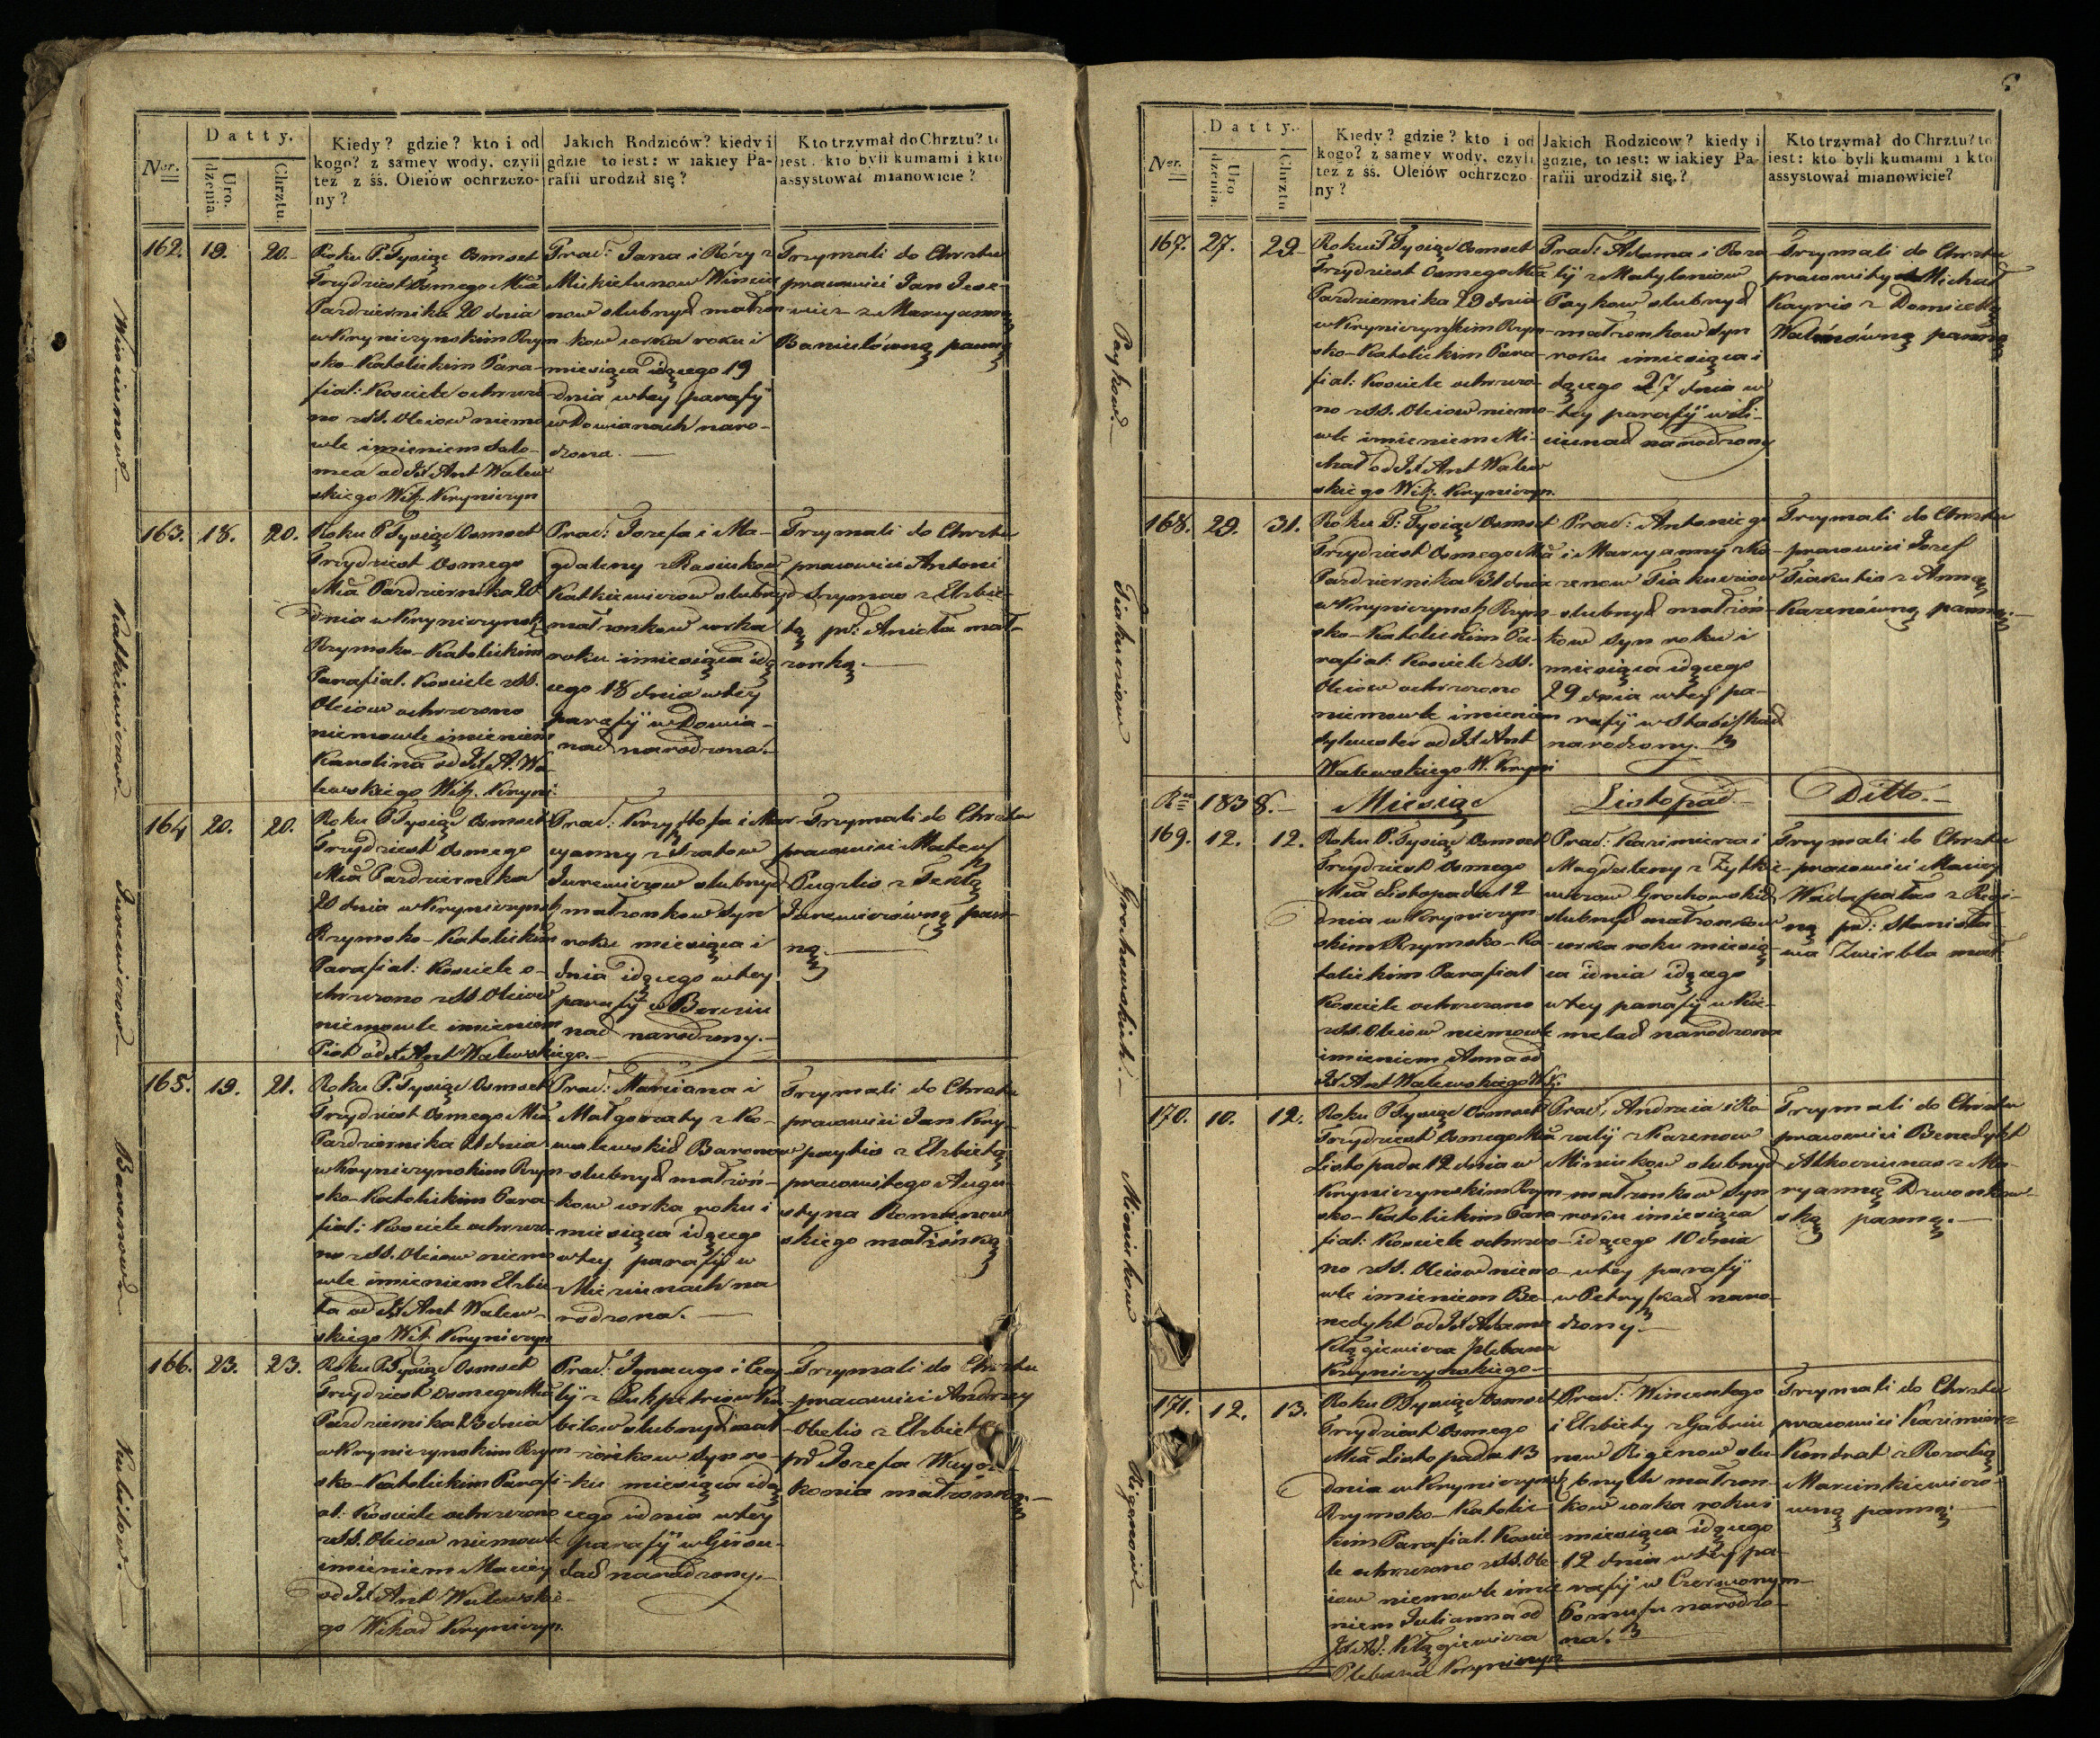 Datty.
Ner.
Uro-
dzenia.
Chrztu.
Kiedy? gdzie? kto i od
kogo? z samey wody, czyli
też z śś. Oleiów ochrzczo-
ny?
Jakich Rodziców? kiedy i
gdzie to iest: w iakiey Pa-
rafii urodził się?
Kto trzymał do Chrztu? to
iest: kto byli kumami i kto
assystował mianowicie?
162. 19. 20.
Roku P. Tysiąc Osmset
Trzydziest Osmego Mca
Pazdziernika 20 dnia
w Kryniczynskim Rzym-
sko-Katolickim Para-
fial: Kosciele ochrzczo-
no z SS. Oleiow niemo
wle imieniem Salo-
mea od JX Ant Walew
skiego Wik. Kryniczyn
Prac: Jana i Róży z
Mickielunow Winciu
now slubnych małżon
kow corka roku i
miesiąca idącego 19
dnia w tey parafij
w Dowianach naro-
dzona.
Trzymali do Chrztu
pracowici Jan Jese-
wicz z Maryanną
Baniulówną panną
163. 18. 20.
Roku P Tysiąc Osmset
Trzydziest Osmego
Mca Pazdziernika 20
dnia w Kryniczynsk
Rzymsko-Katolickim
Parafial. Kosciele z SS.
Oleiow ochrzczono
niemowle imieniem
Karolina od JX A. Wa-
lewskiego Wik. Kryni
Prac: Jozefa i Ma-
gdaleny z Rasiukow
Katkiewiczow slubnych
małżonkow corka
roku i miesiąca idą
cego 18 dnia w tey
parafij w Dowia-
nach narodzona.
Trzymali do Chrztu
pracowici Antoni
Szymas z Elzbie-
tą pr: Anicła mał-
żonką.
164 20. 20.
Roku P Tysiąc Osmset
Trzydziest Osmego
Mca Pazdziernika
20 dnia w Kryniczynsk
Rzymsko-Katolickim
Parafial: Kosciele o-
chrzczono z SS Oleiow
niemowle imieniem
Piotr od JX Ant Walewskiego.
Prac: Krzysztofa i Mar-
yanny z Szatow
Jurewiczow slubnych
małżonkow syn
roku miesiąca i
dnia idącego w tey
parafij w Borciu
nach narodzony.
Trzymali do Chrztu
pracowici Mateusz
Pugzlis z Teklą
Jurewiczówną pan-
ną.
165. 19. 21.
Roku P. Tysiąc Osmset
Trzydziest Osmego Mca
Pazdziernika 21 dnia
w Krynicznynskim Rzym-
sko-Katolickim Para-
fial: Kosciele ochrzczo-
no z SS. Oleiow niemo
wle imieniem Elzbie
ta od JX Ant Walew-
skiego Wik Krynicyn
Prac: Marciana i
Małgorzaty z Ko-
walewskich Baronow
slubnych małżon-
kow corka roku i
miesiąca idącego
w tey parafij w
Mieziunach na
rodzona.
Trzymali do Chrztu
pracowici Jan Kry-
paytis z Elzbietą
pracowitego Augu-
styna Romanow
skiego małżonką
166. 23. 23.
Roku P Tysiąc Osmset
Trzydziest Osmego Mca
Pazdziernika 23 dnia
w Krynicznynskim Rzym
sko-Katolickim Parafi
al: Kosciele ochrzczono
z SS. Oleiow niemowle
imieniem Maciey
od JX Ant Walewskie-
go Wikar Krynicyn.
Prac: Ignacego i Cecy
lij z Lukpetrisow Ku-
bilow slubnych mał-
żonkow syn ro-
ku miesiąca idą
cego i dnia w tey
parafij w Girsu-
dach narodzony.
Trzymali do Chrztu
pracowici Andrzey
Obelis z Elzbietą
pr Jozefa
małżonką
Winciunow
Katkiewiczow
Jurewiczow
Baronow.
Kubilow.
Datty.
Ner.
Uro
dzenia.
Chrztu
Kiedy? gdzie? kto i od
kogo? z samey wody, czyli
też z śś. Oleiów ochrzczo
ny?
Jakich Rodzicow? kiedy i
gdzie, to iest: w iakiey Pa-
rafii urodził się.?
Kto trzymał do Chrztu? to
iest: kto byli kumami i kto
assystował mianowicie?
167. 27. 29
Roku P Tysiąc Osmset
Trzydziest Osmego Mca
Pazdziernika 29 dnia
w Krynicznynskim Rzym
sko-Katolickim Para-
fial: Kosciele ochrzczo-
no z SS. Oleiow niemo-
wle imieniem Mi-
chał od JX Ant Walew
skiego Wik. Krynicyn.
Prac: Adama i Roza
lij z Matylaniow
Paykow slubnych
małżonkow syn
roku i miesiąca i
dącego 27 dnia w
tey parafij w Ii-
ciunach narodzony
Trzymali do Chrztu
pracowity Michał
Kayris z Domicellą
Walunówną panną
168. 29. 31.
Roku P: Tysiąc Osmset
Trzydziest Osmego Mca
Pazdziernika 31 dnia
w Krynicznynsk Rzym-
sko-Katolickim Pa-
rafial: Kosciele z SS.
Oleiow ochrzczono
niemowle imieniem
Sylwester od JX Ant
Walewskiego W. Kryni
Prac: Antoniego
i Maryanny z Ka-
zenow Tiakucziow
slubnych małżon-
kow syn roku i
miesiąca idącego
29 dnia w tey pa-
rafij w Stabiszkach
narodzony.
Trzymali do Chrztu
pracowici Jozef
Tiakutis z Anną
Kazenówną panną.
Ru 1838. Miesiąc Listopad Ditto.
169. 12. 12.
Roku P. Tysiąc Osmset
Trzydziest Osmego
Mca Listopada 12
dnia w Kryniczyn-
skim Rzymsko-Ka-
tolickim Parafial
Kosciele ochrzczono
z SS. Oleiow niemowle
imieniem Anna od
JX Ant Walewskiego Wk:
Prac: Kazimierza i
Magdaleny z Zytkie-
wiczow Grochowskich
slubnych małżonkow
corka roku miesią-
ca i dnia idącego
w tey parafij w Kie-
melach narodzona
Trzymali do Chrztu
pracowici Maciey
Waidapałas z Regi-
ną pr: Stanisła-
wa Zwirbla mał
170. 10. 12.
Roku P Tysiąc Osmset
Trzydziest Osmego Mca
Listopada 12 dnia w
Krynicznynskim Rzym-
sko-Katolickim Para-
fial: Kosciele ochrzczo-
no z SS. Oleiow niemo-
wle imieniem Be-
nedykt od JX Adama
Kłągiewicza Plebana
Krynicznynskiego
Prac: Andrzeia i Ro
zalij z Kazenow
Miniukow slubnych
małżonkow syn
roku i miesiąca
idącego 10 dnia
w tey parafij
w Petryszkach naro-
dzony.
Trzymali do Chrztu
pracowici Benedykt
Alkociunas z Ma-
ryanną Dzwonkow-
ską panną.
171. 12. 13.
Roku P Tysiąc Osmset
Trzydziest Osmego
Mca Listopada 13
dnia w Krynicznynsk
Rzymsko-Katolic-
kim Parafial. Koscie-
le ochrzczono z SS. Ole-
iow niemowle imie
niem Julianna od
JX Ad: Kłągiewicza
Plebana Krynicznyn
Prac: Wincentego
i Elzbiety z Gabriu
now Riganow slu-
bnych małżon-
kow corka roku i
miesiąca idącego
12 dnia w tey pa-
rafij w Czerwonym-
Pomuszu narodzo-
na.
Trzymali do Chrztu
pracowici Kazimierz
Kondrat z Rozalią
Marcinkiewiczo-
wną panną.
Paykow.
Tiakucziow
Grochowskich.
Miniukow
Riganow